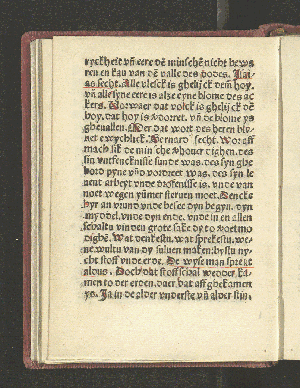 ryckheit vñ eere dē minschē nicht bews
ren en kan van dē valle des dodes. Jsai
as secht. Alle vleisck is ghelijck dem hoy.
vñ alle syne eere is alze eyne blome des ac
kers. Vorwaer dat volck is ghelijck dē
hoy. dat hoy is vorret. vñ de blome ys
ghevallen. Mer dat wort des heren bly
uet ewychlick. Bernard secht. Wor aff
mach sik de minsche vhouerdighen. des
sin vntfencknisse sunde was. des syn ghe
bord pyne vñ vordreet was. des syn le
uent arbeyt vnde droffenisse is. vnde van
noet wegen ym̄er steruen moet. Dencke
hyr an vnde vnde besee dyn begyn. dyn
myddel. vnde dyn ende. vnde in en allen
schaltu vinden grote sake dy to voetmo
dighē. Wat denkestu. wat sprekestu. we
ne wultu van dy suluen maken: bystu ny
cht stoff vnde erde. De wyse man spreket
alsus. Doch dat stoff schal wedder ka
men to der erden. daer dat aff ghekamen
ys. Ja in de alder vnderste vñ alder stin